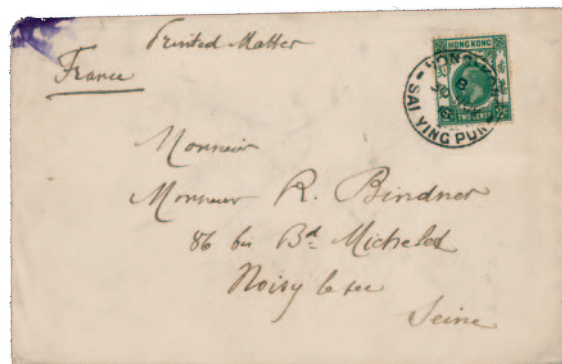 Printed Matter
France
HONG KONG
TWO CENTS
HONG KONG
SAI YING PUN
Monsieur
Monsieur R. Bindner
86 bis Bd Michelet
Noisy le sec
Seine